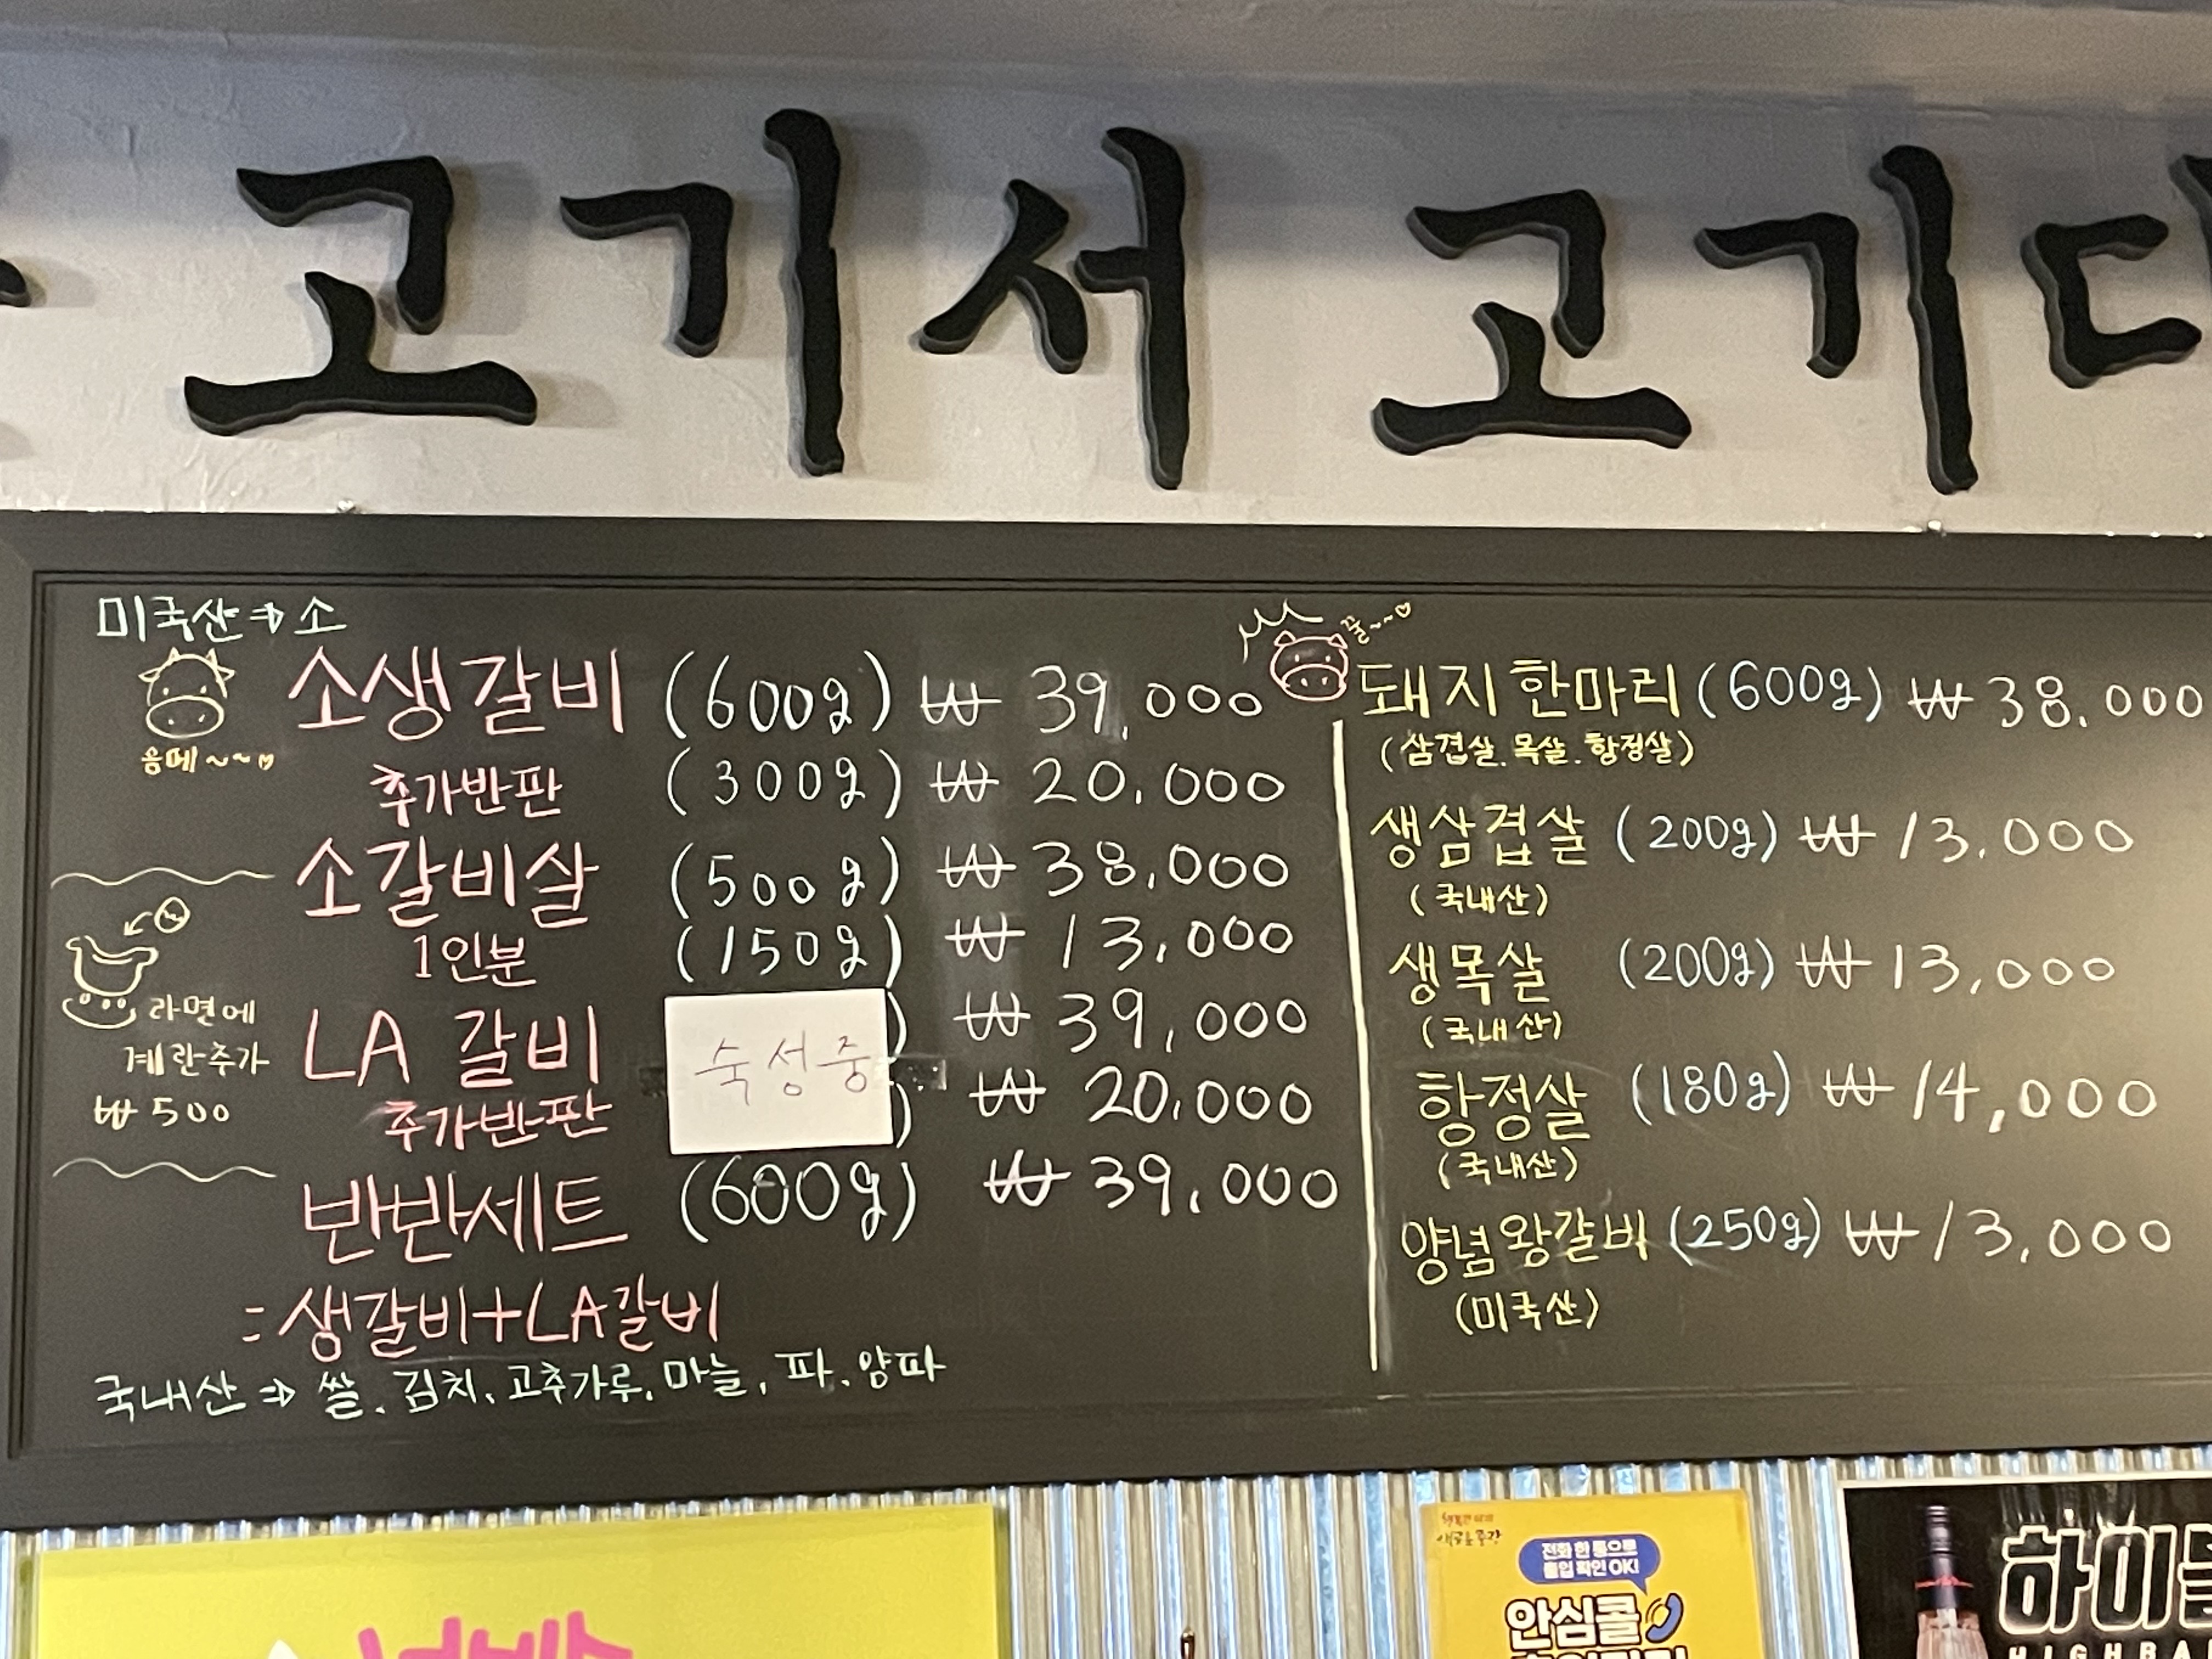 고기서 고기
미국산 ⇒ 소
음메~~♡
소생갈비 (600g) ₩ 39,000
추가반판 (300g) ₩ 20,000
소갈비살 (500g) ₩ 38,000
1인분 (150g) ₩ 13,000
LA 갈비 ) ₩ 39,000
추가반판 ) ₩ 20,000
숙성중
반반세트 (600g) ₩ 39,000
= 생갈비+LA갈비
국내산 ⇒ 쌀, 김치, 고추가루, 마늘, 파, 양파
라면에
계란추가
₩ 500
꿀~~♡
돼지한마리 (600g) ₩ 38,000
(삼겹살.목살.항정살)
생삼겹살 (200g) ₩ 13,000
(국내산)
생목살 (200g) ₩ 13,000
(국내산)
항정살 (180g) ₩ 14,000
(국내산)
양념왕갈비 (250g) ₩ 13,000
(미국산)
전화 한 통으로
출입 확인 OK!
안심콜
하이
HIGHBA